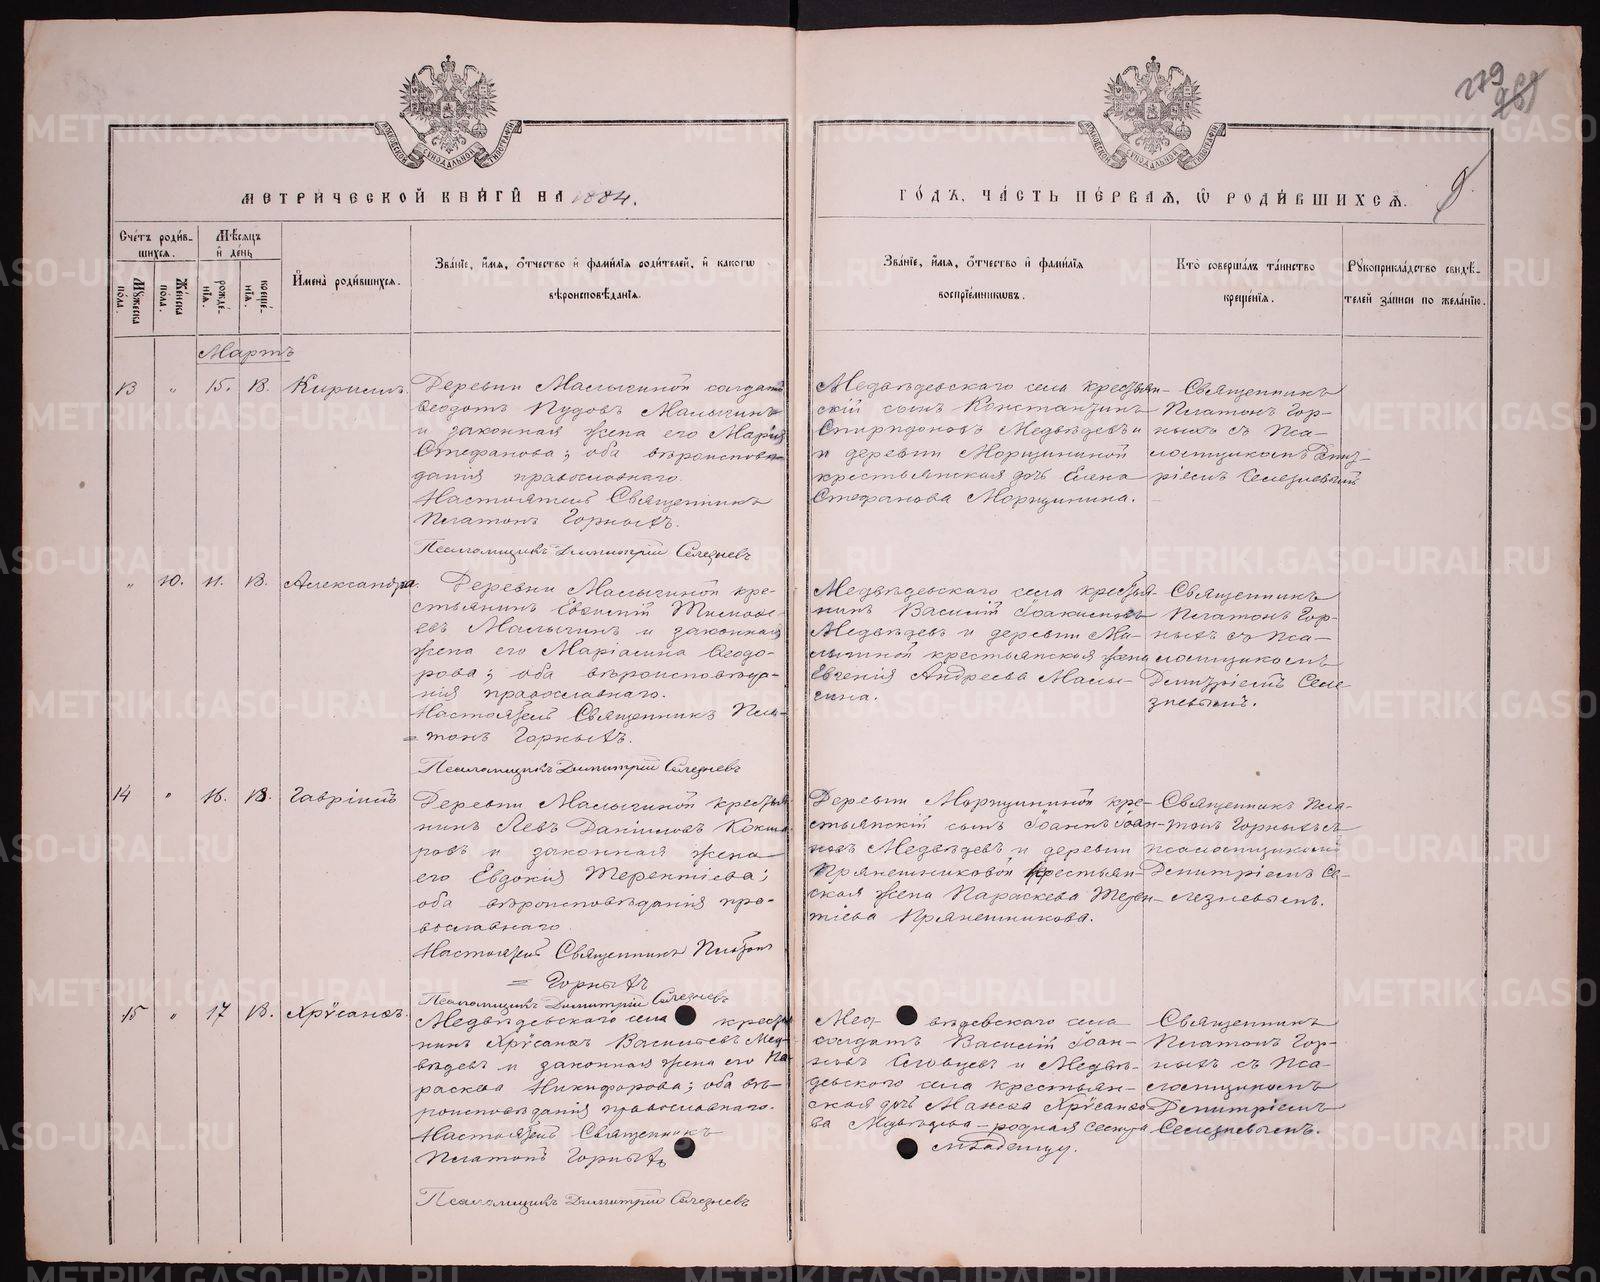 279
МЕТРИЧЕСКОЙ КНИГИ НА 1884.
ГОДЪ, ЧАСТЬ ПЕРВАЯ, Ѡ РОДИВШИХСЯ.
9.
Счетъ родив-
шихся.
Мужеска пола.
Женска пола.
Мѣсяцъ
и день
рожде-
нія.
креще-
нія.
Имена родившихся.
Званіе, имя, отчество и фамилія родителей, и какого
вѣроисповѣданія.
Званіе, имя, отчество и фамилія
воспріемниковъ.
Кто совершалъ таинство
крещенія.
Рукоприкладство свидѣ-
телей записи по желанію.
Мартъ
13 " 15. 18. Кириллъ.
Деревни Малыгиной солдатъ
Ѳеодотъ Пудовъ Малыгинъ
и законная жена его Марія
Стефанова; оба вѣроисповѣ-
данія православнаго.
Настоятель Священникъ
Платонъ Горныхъ.
Псаломщикъ Димитрій Селезневъ
Медвѣдевскаго села крестьян-
скій сынъ Константинъ
Спиридоновъ Медвѣдевъ и
и деревни Морщининой
крестьянская дочь Елена
Стефанова Морщинина.
Священникъ
Платонъ Гор-
ныхъ съ Пса-
ломщикомъ Дмит-
ріемъ Селезневымъ
" 10. 11. 18. Александра.
Деревни Малыгиной кре-
стьянинъ Евгеній Тимоѳе-
евъ Малыгинъ и законная
жена его Маріамна Ѳеодо-
рова; оба вѣроисповѣда-
нія православнаго.
Настоятель Священникъ Пла-
= тонъ Горныхъ.
Псаломщикъ Димитрій Селезневъ
Медвѣдевскаго села крестья-
нинъ Василій Іоакимовъ
Медвѣдевъ и деревни Ма-
лыгиной крестьянская жена
Евгенія Андреева Малы-
гина.
Священникъ
Платонъ Гор-
ныхъ съ Пса-
ломщикомъ
Дмитріемъ Селе-
зневымъ.
14 " 16. 18. Гавріилъ
Деревни Малыгиной крестья-
нинъ Левъ Даніиловъ Кокша-
ровъ и законная жена
его Евдокія Терентіева;
оба вѣроисповѣданія пра-
вославнаго.
Настоятель Священникъ Платонъ
= Горныхъ
Псаломщикъ Димитрій Селезневъ
Деревни Морщининой кре-
стьянскій сынъ Іоаннъ Іоан-
новъ Медвѣдевъ и деревни
Прянешниковой крестьян-
ская жена Параскева Терен-
тіева Прянешникова.
Священникъ Пла-
тонъ Горныхъ съ
псаломщикомъ
Дмитріемъ Се-
лезневымъ.
15 " 17 18. Хрѵсанѳъ.
Медвѣдевскаго села крестья-
нинъ Хрѵсанѳъ Васильевъ Мед-
вѣдевъ и законная жена его Па-
раскева Никифорова; оба вѣ-
роисповѣданія православнаго.
Настоятель Священникъ
Платонъ Горныхъ
Псаломщикъ Димитрій Селезневъ
Медвѣдевскаго села
солдатъ Василій Іоан-
новъ Словцевъ и Медвѣ-
девского села крестьян-
ская дочь Манеѳа Хрѵсанѳо-
ва Медвѣдева - родная сестра
младенцу.
Священникъ
Платонъ Гор-
ныхъ съ Пса-
ломщикомъ
Дмитріемъ
Селезневымъ.
METRIKI.GASO-URAL.RU